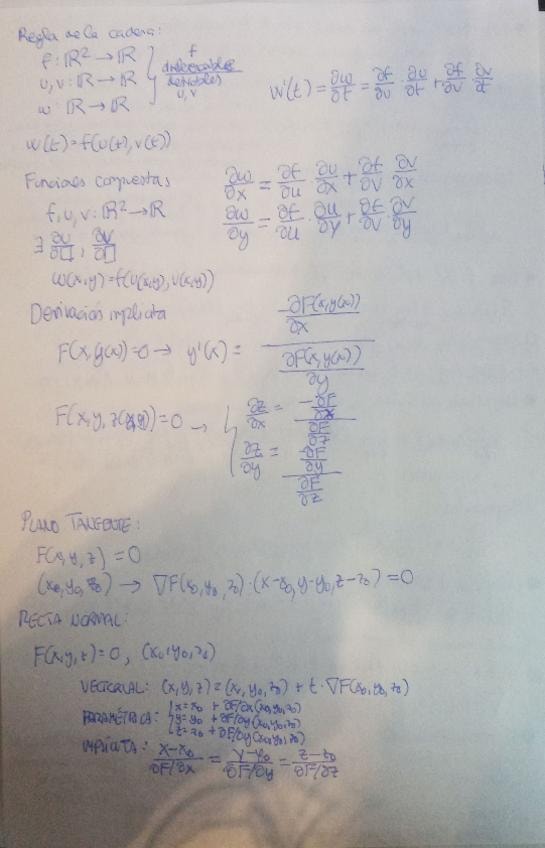 Regla de la cadena:
f: ℝ² → ℝ
u, v: ℝ → ℝ
w: ℝ → ℝ
f diferenciable
derivables u, v
w'(t) = ∂w/∂t = ∂f/∂u · ∂u/∂t + ∂f/∂v · ∂v/∂t
w(t) = f(u(t), v(t))
Funciones compuestas
f, u, v: ℝ² → ℝ
∃ ∂u/∂[], ∂v/∂[]
w(x,y) = f(u(x,y), v(x,y))
∂w/∂x = ∂f/∂u · ∂u/∂x + ∂f/∂v · ∂v/∂x
∂w/∂y = ∂f/∂u · ∂u/∂y + ∂f/∂v · ∂v/∂y
Derivación implícita
F(x, y(x)) = 0 → y'(x) = (-∂F(x, y(x))/∂x) / (∂F(x, y(x))/∂y)
F(x, y, z(x,y)) = 0 →
∂z/∂x = (-∂F/∂x) / (∂F/∂z)
∂z/∂y = (-∂F/∂y) / (∂F/∂z)
PLANO TANGENTE:
F(x, y, z) = 0
(x₀, y₀, z₀) → ∇F(x₀, y₀, z₀) · (x-x₀, y-y₀, z-z₀) = 0
RECTA NORMAL:
F(x, y, z) = 0, (x₀, y₀, z₀)
VECTORIAL: (x, y, z) = (x₀, y₀, z₀) + t · ∇F(x₀, y₀, z₀)
PARAMÉTRICA:
x = x₀ + ∂F/∂x (x₀, y₀, z₀)
y = y₀ + ∂F/∂y (x₀, y₀, z₀)
z = z₀ + ∂F/∂z (x₀, y₀, z₀)
IMPLÍCITA: (x-x₀)/(∂F/∂x) = (y-y₀)/(∂F/∂y) = (z-z₀)/(∂F/∂z)